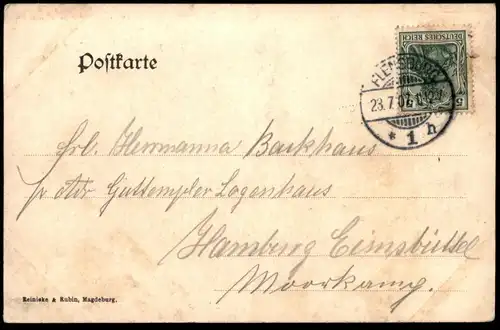 Postkarte
DEUTSCHES REICH
5
FLENSBURG
23.7.07.
* 1 h
Frl. Hermanna Backhaus
p. Adr. Guttempler Logenhaus
Hamburg Eimsbüttel
Moorkamp.
Reinicke & Rubin, Magdeburg.